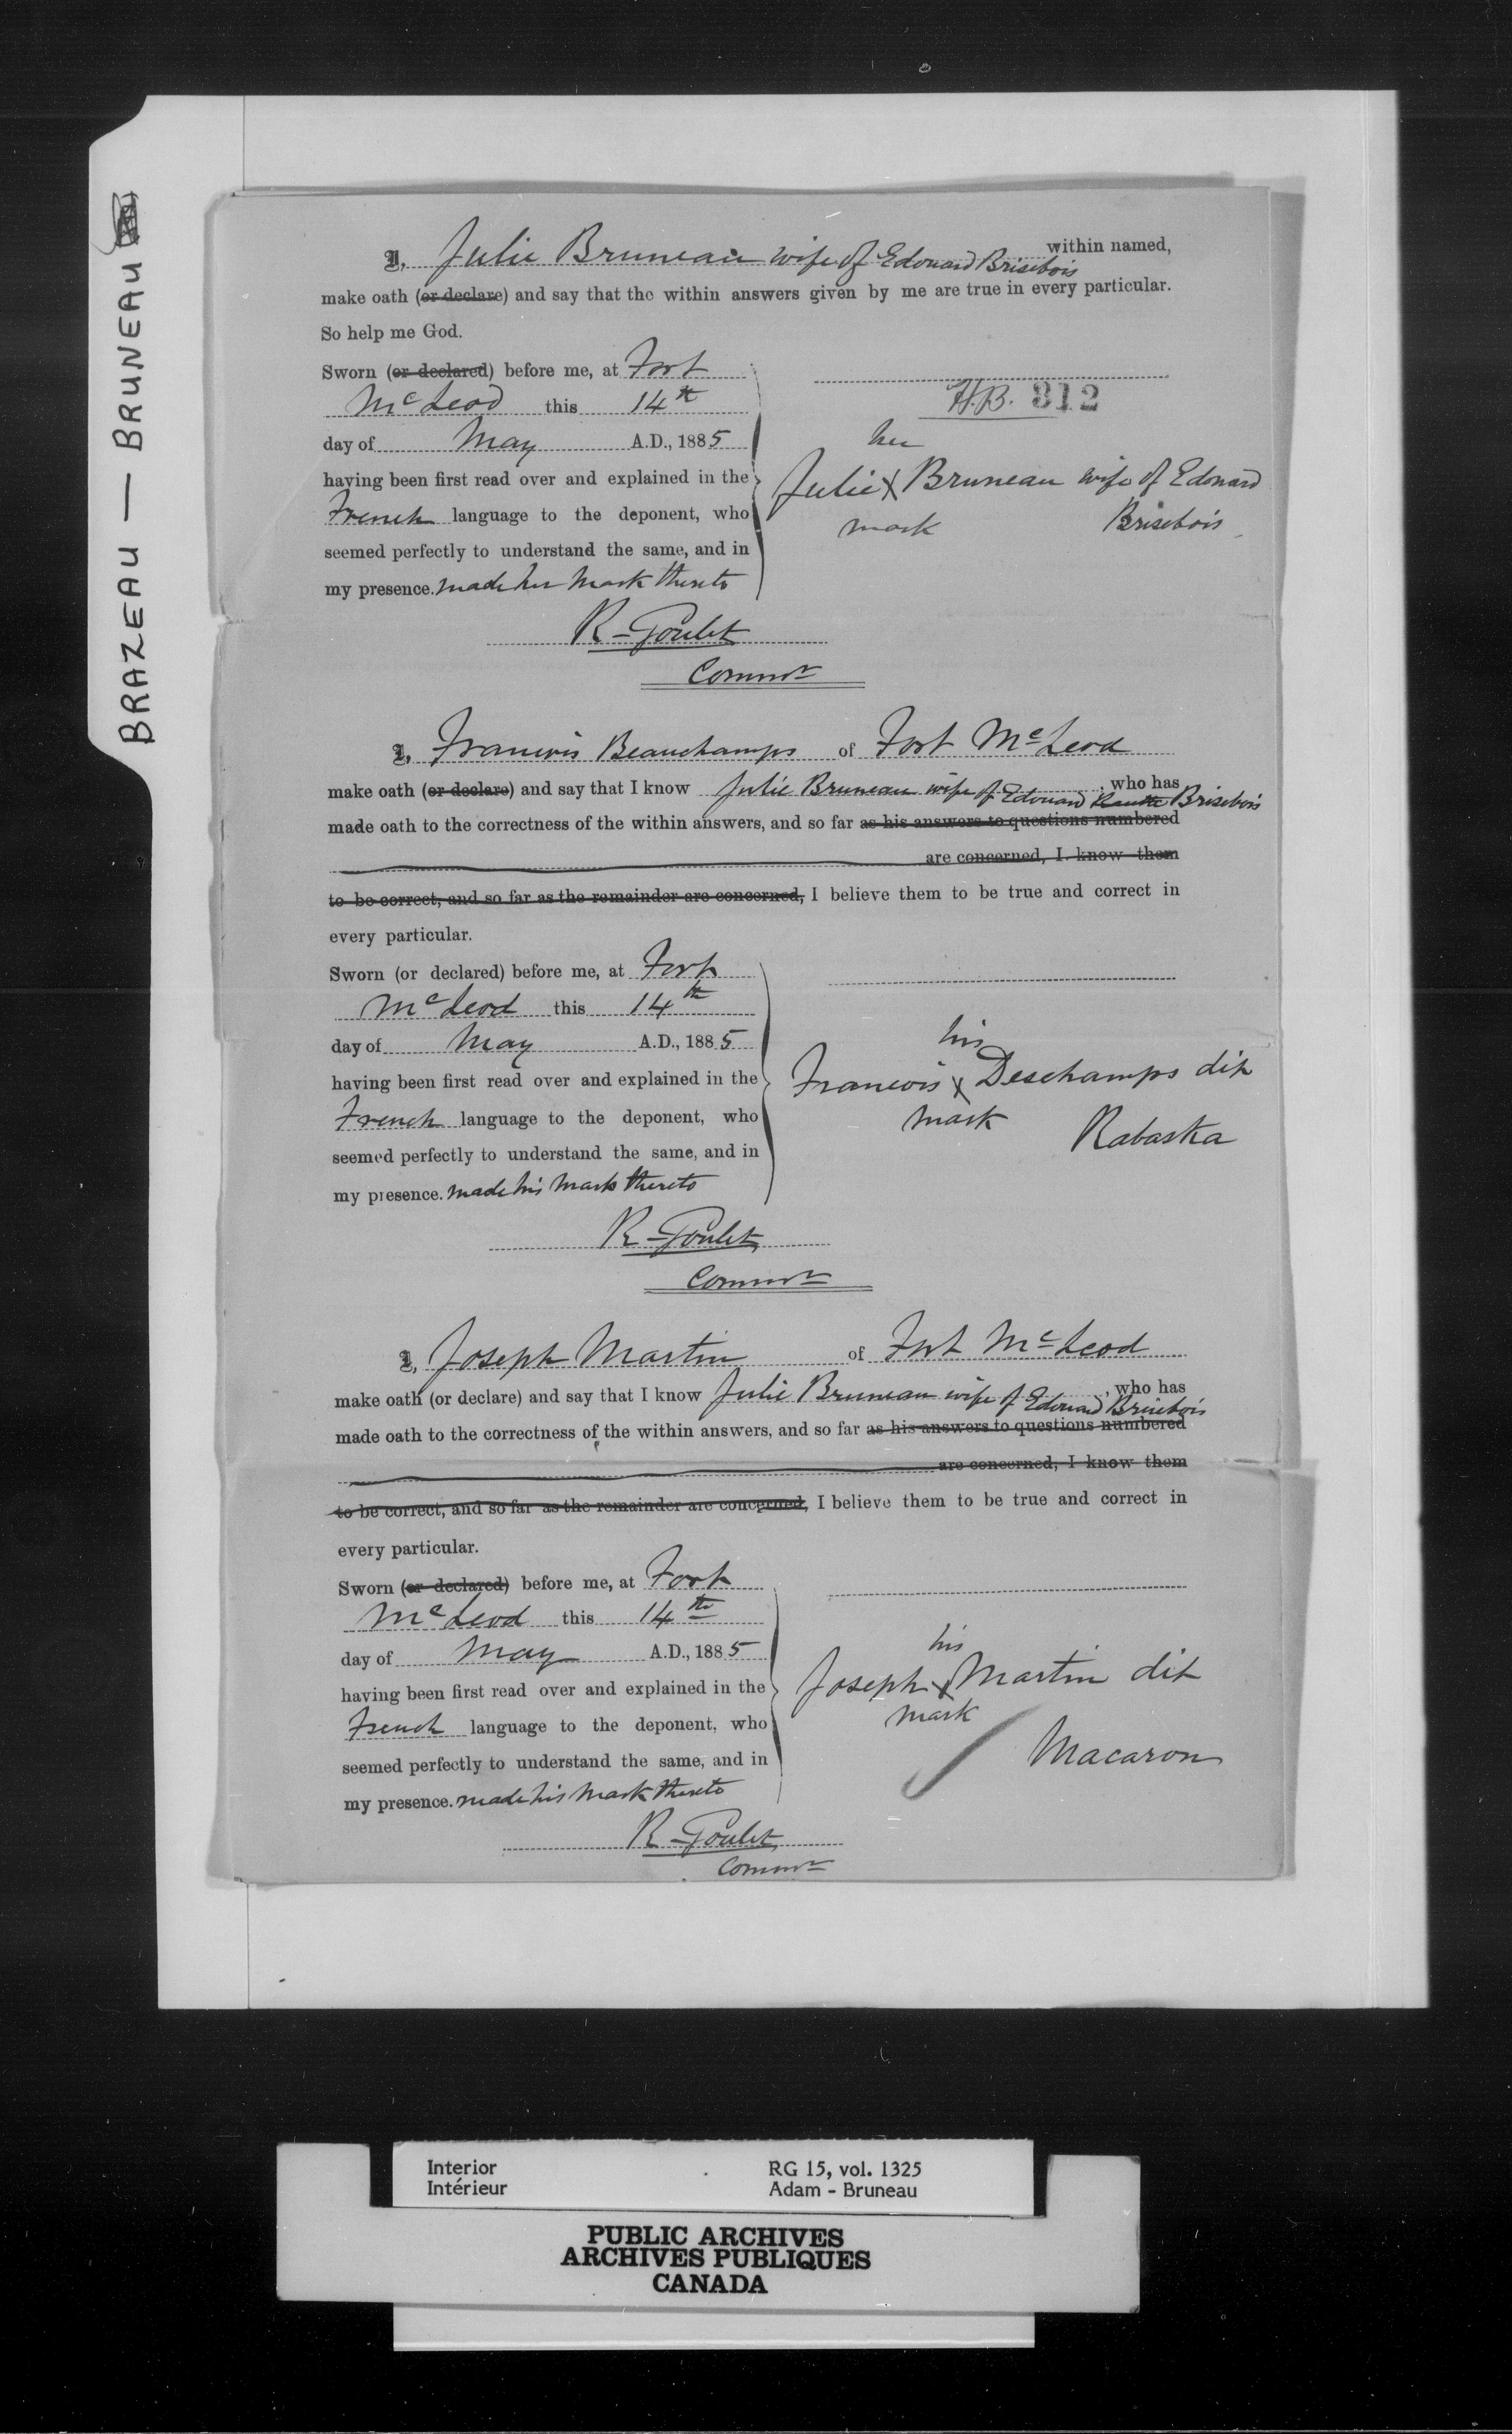 BRAZEAU — BRUNEAU
I, Julie Bruneau wife of Edouard Brisebois within named,
make oath (or declare) and say that the within answers given by me are true in every particular.
So help me God.
Sworn (or declared) before me, at Fort
McLeod this 14th
day of May A.D., 1885
having been first read over and explained in the
French language to the deponent, who
seemed perfectly to understand the same, and in
my presence. made her mark thereto
H.B. 312
her
Julie X Bruneau wife of Edouard
mark Brisebois
R Goulet
Commr
I, Francois Beauchamps of Fort McLeod
make oath (or declare) and say that I know Julie Bruneau wife of Edouard Brisebois, who has
made oath to the correctness of the within answers, and so far as his answers to questions numbered
are concerned, I know them
to be correct, and so far as the remainder are concerned, I believe them to be true and correct in
every particular.
Sworn (or declared) before me, at Fort
McLeod this 14th
day of May A.D., 1885
having been first read over and explained in the
French language to the deponent, who
seemed perfectly to understand the same, and in
my presence. made his mark thereto
his
Francois X Deschamps dit
mark Rabaska
R Goulet
Commr
I, Joseph Martin of Fort McLeod
make oath (or declare) and say that I know Julie Bruneau wife of Edouard Brisebois, who has
made oath to the correctness of the within answers, and so far as his answers to questions numbered
are concerned, I know them
to be correct, and so far as the remainder are concerned, I believe them to be true and correct in
every particular.
Sworn (or declared) before me, at Fort
McLeod this 14th
day of May A.D., 1885
having been first read over and explained in the
French language to the deponent, who
seemed perfectly to understand the same, and in
my presence. made his mark thereto
his
Joseph X Martin dit
mark
Macaron
R Goulet
Commr
Interior RG 15, vol. 1325
Intérieur Adam - Bruneau
PUBLIC ARCHIVES
ARCHIVES PUBLIQUES
CANADA